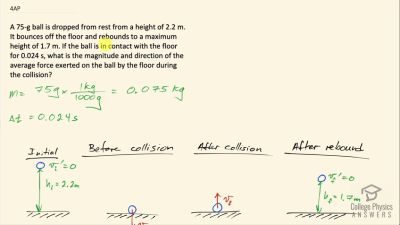 4AP
A 75-g ball is dropped from rest from a height of 2.2 m.
It bounces off the floor and rebounds to a maximum
height of 1.7 m. If the ball is in contact with the floor
for 0.024 s, what is the magnitude and direction of the
average force exerted on the ball by the floor during
the collision?
m = 75g × 1kg/1000g = 0.075 kg
Δt = 0.024s
Initial Before collision After collision After rebound
vi' = 0
hi = 2.2m
vf
vf' = 0
hf = 1.7m
College Physics
ANSWERS